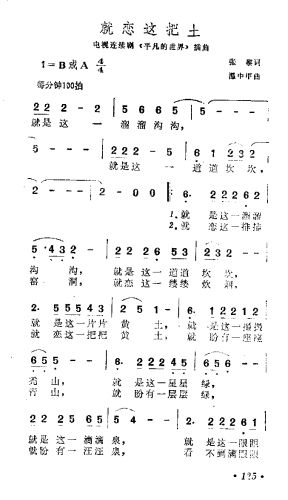 就恋这把土
电视连续剧《平凡的世界》插曲
1=B或A 4/4
张 词
温中甲曲
每分钟100拍
222 2 - | 5 6 6 5 5 |
就是这 一 溜溜沟沟，
5 - - - | 222 5 - | 6 1 232 |
就是这 一 道道坎坎，
2 - - - | 2 - 0 0 | 6· 22262 |
1.就 是这一溜溜
2.就 恋这一排排
5·432 - | 2 22653 | 2322 - |
沟 沟， 就 是这一道道 坎坎，
窑 洞， 就 恋这一缕缕 炊烟，
2· 55543 | 2 12 - | 6· 22261 |
就 是这一片片 黄 土， 就 是这一
就 恋这一把把 黄 土， 就 盼有一座座
655 - | 2 22450 | 655 - |
秃山， 就 是这一星星 绿，
青山， 就 盼有一层层 绿，
5 55543 | 212 - | 2· 22261 |
就 是这一滴滴 泉， 就 是这一眼眼
就 盼有一汪汪 泉， 看 不到满眼眼
· 125 ·